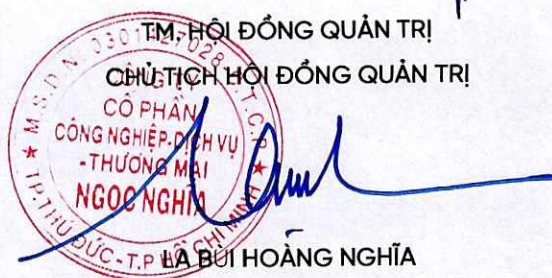 TM. HỘI ĐỒNG QUẢN TRỊ
CHỦ TỊCH HỘI ĐỒNG QUẢN TRỊ
M.S.D.N: C.T.C.P
CÔNG TY
CỔ PHẦN
CÔNG NGHIỆP-DỊCH VỤ
-THƯƠNG MẠI
NGỌC NGHĨA
TP.THỦ ĐỨC-T.P HỒ CHÍ MINH
LA BÙI HOÀNG NGHĨA